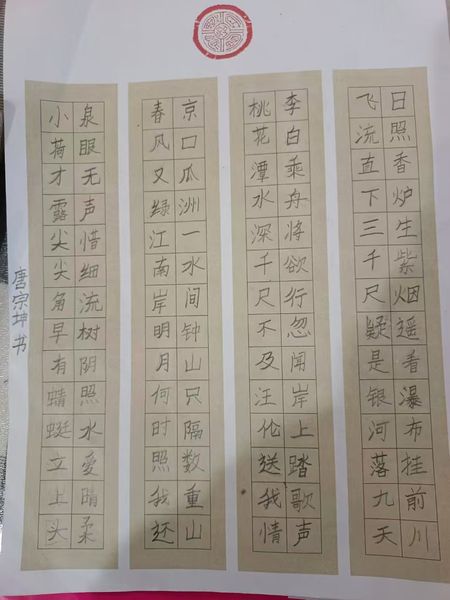 日照香炉生紫烟遥看瀑布挂前川
飞流直下三千尺疑是银河落九天
李白乘舟将欲行忽闻岸上踏歌声
桃花潭水深千尺不及汪伦送我情
京口瓜洲一水间钟山只隔数重山
春风又绿江南岸明月何时照我还
泉眼无声惜细流树阴照水爱晴柔
小荷才露尖尖角早有蜻蜓立上头
唐宗坤书